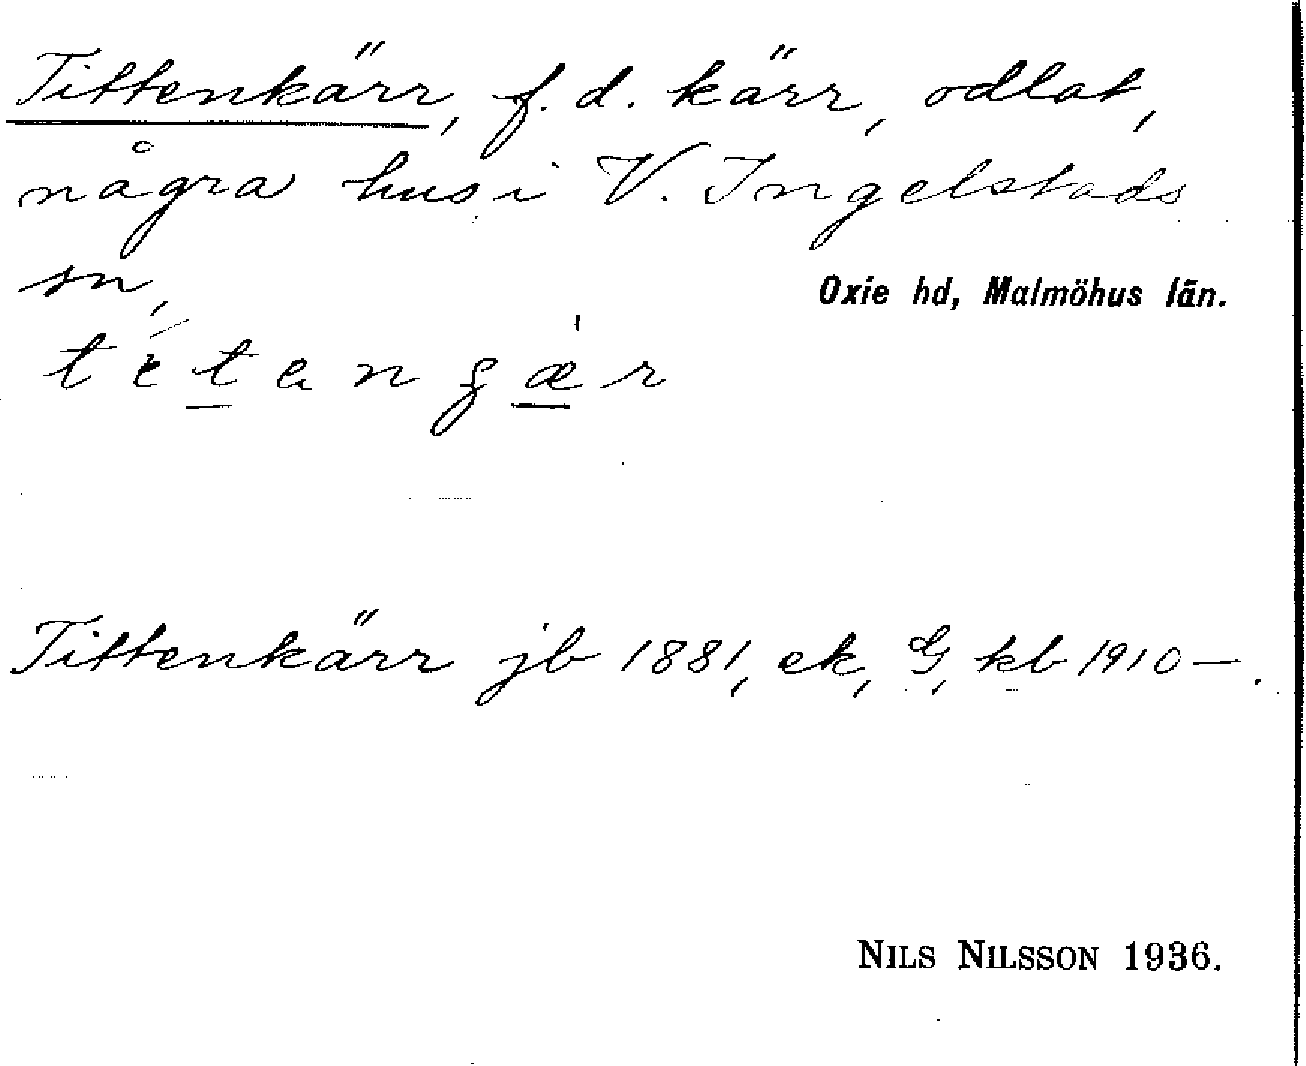 Tittenkärr, f. d. kärr, odlat,
några hus i V. Ingelstads
sn,
Oxie hd, Malmöhus län.
Tittenkärr jb 1881, ek, G, kb 1910—.
NILS NILSSON 1936.